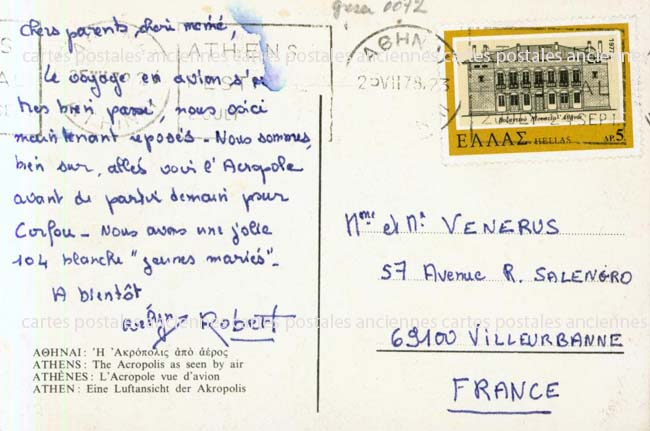 grece 0072
Chers parents, chère mémé,
Le voyage en avion s'est
très bien passé, nous voici
maintenant reposés - Nous sommes,
bien sur, allés voir l'Acropole
avant de partir demain pour
Corfou - Nous avons une jolie
104 blanche "jeunes mariés" -
A bientôt
Robert
ΑΘΗΝΑΙ: Ἡ Ἀκρόπολις ἀπὸ ἀέρος
ATHENS: The Acropolis as seen by air
ATHÈNES: L'Acropole vue d'avion
ATHEN: Eine Luftansicht der Akropolis
ATHENS
ΑΘΗΝ
25VII78.23
1977
ΕΛΛΑΣ HELLAS ΔΡ.5
Mme et Mr VENERUS
57 Avenue R. SALENGRO
69100 VILLEURBANNE
FRANCE
cartes postales anciennes
cartes postales anciennes
cartes postales anciennes
cartes postales anciennes